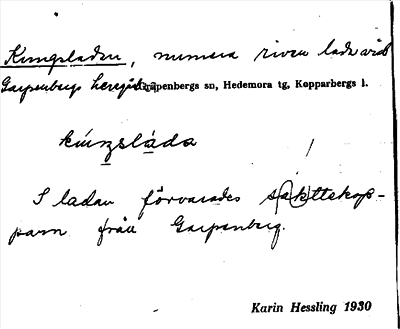 Kungsladan, numera riven lada vid
Garpenbergs herrgård Garpenbergs sn, Hedemora tg, Kopparbergs l.
kúŋsláda
I ladan förvarades skattekop-
parn från Garpenberg.
Karin Hessling 1930